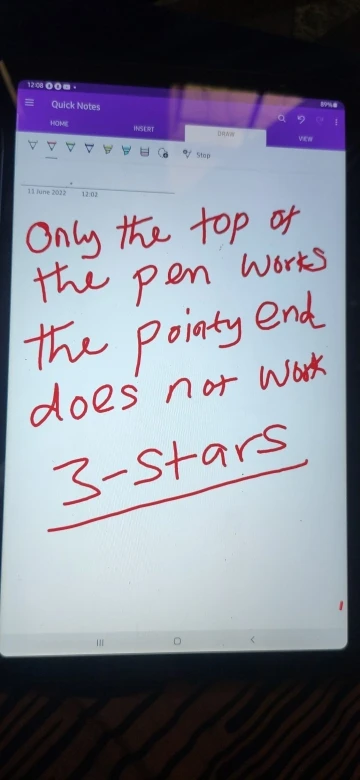 12:08
89%
Quick Notes
HOME
INSERT
DRAW
VIEW
Stop
11 June 2022 12:02
Only the top of
the pen works
the pointy end
does not work
3-stars